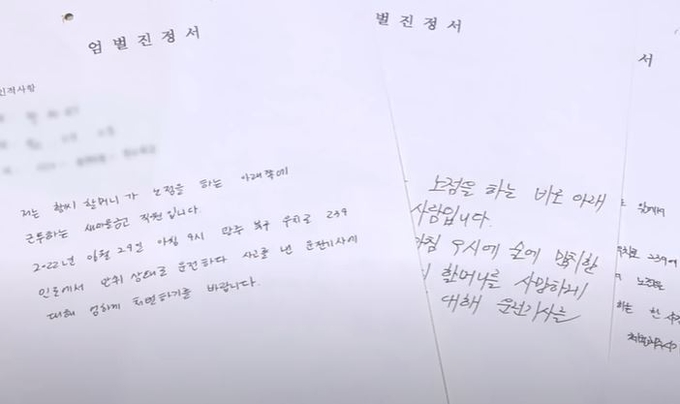 엄벌진정서
인적사항
저는 황씨 할머니가 노점을 하는 아래쪽에
근무하는 새마을금고 직원입니다.
2022년 06월 29일 아침 9시 광주 북구 우치로 239
인도에서 만취 상태로 운전하다 사고를 낸 운전기사에
대해 엄하게 처벌하기를 바랍니다.
벌진정서
노점을 하는 바로 아래
사람입니다.
아침 9시에 술에 만취한
할머니를 사망하게
대해 운전기사를
서
우치로 239에
하는 한 사람